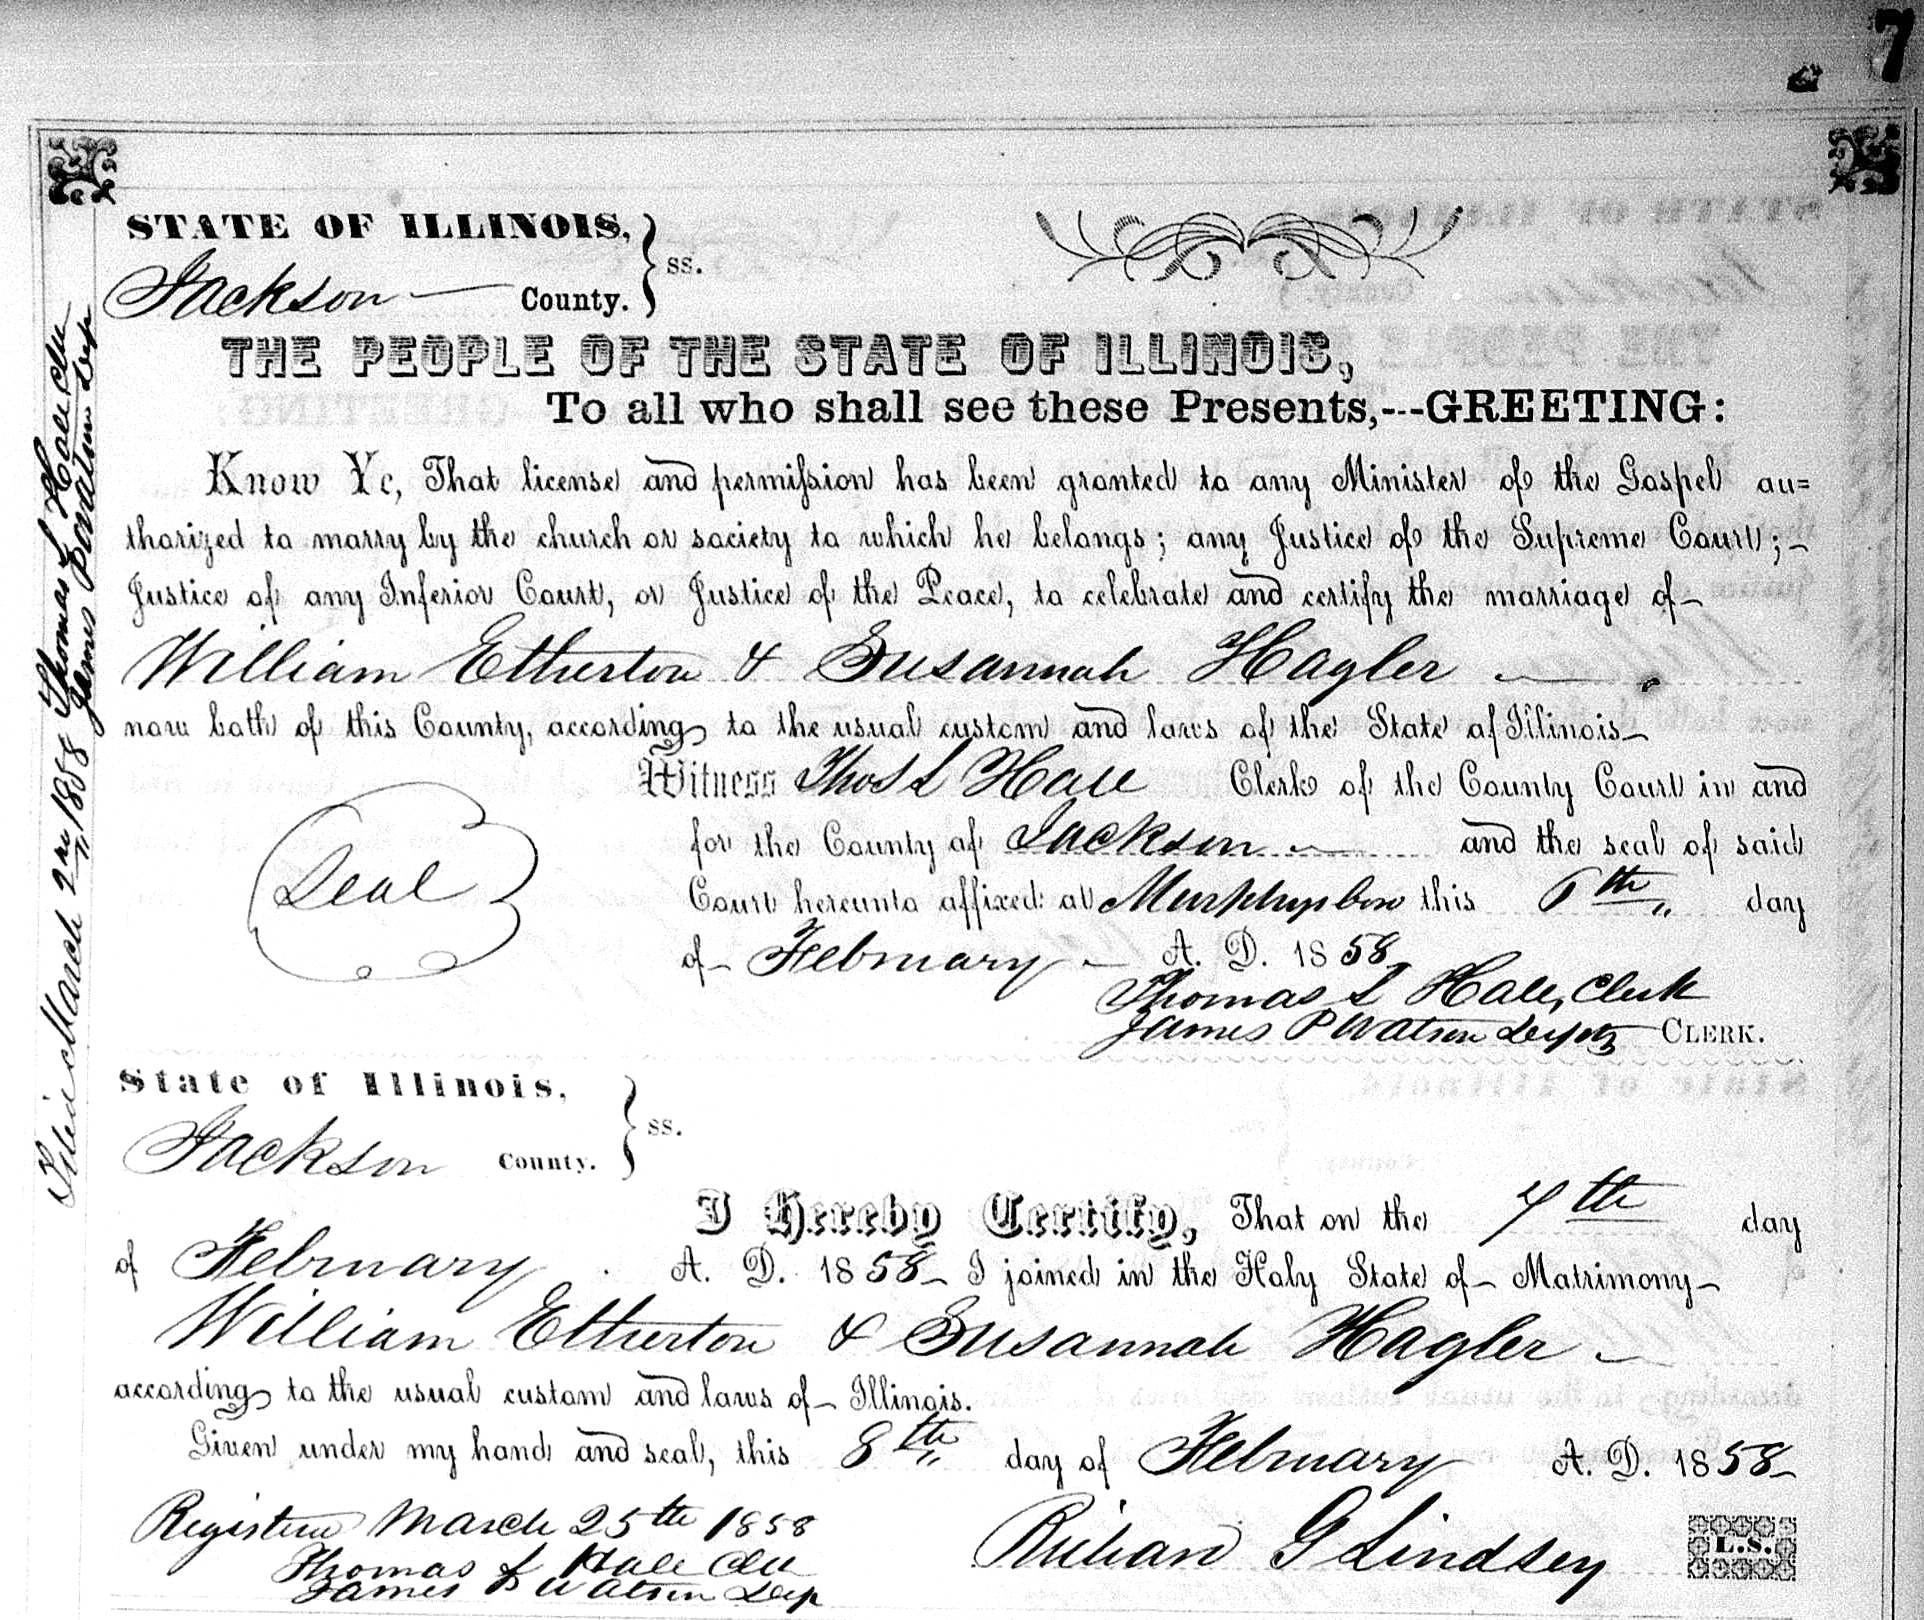 7
STATE OF ILLINOIS,
Jackson County. } ss.
THE PEOPLE OF THE STATE OF ILLINOIS,
To all who shall see these Presents,---GREETING:
Know Ye, That license and permission has been granted to any Minister of the Gospel au=
thorized to marry by the church or society to which he belongs; any Justice of the Supreme Court;
Justice of any Inferior Court, or Justice of the Peace, to celebrate and certify the marriage of
William Etherton & Susannah Hagler
now both of this County, according to the usual custom and laws of the State of Illinois
Witness Thos L Hall Clerk of the County Court in and
for the County of Jackson and the seal of said
Seal
Court hereunto affixed at Murphysboro this 6th day
of February A. D. 1858
Thomas L Hall, Clerk
James P Watson Depty CLERK.
State of Illinois,
Jackson County. } ss.
I Hereby Certify, That on the 7th day
of February A. D. 1858 I joined in the Holy State of Matrimony
William Etherton & Susannah Hagler
according to the usual custom and laws of Illinois.
Given under my hand and seal, this 8th day of February A. D. 1858
Registered March 25th 1858
Thomas L Hall Clk
James P Watson Dep
G Lindsey L.S.
Filed March 2nd 1858 Thomas L Hall Clk
James P Watson Dep